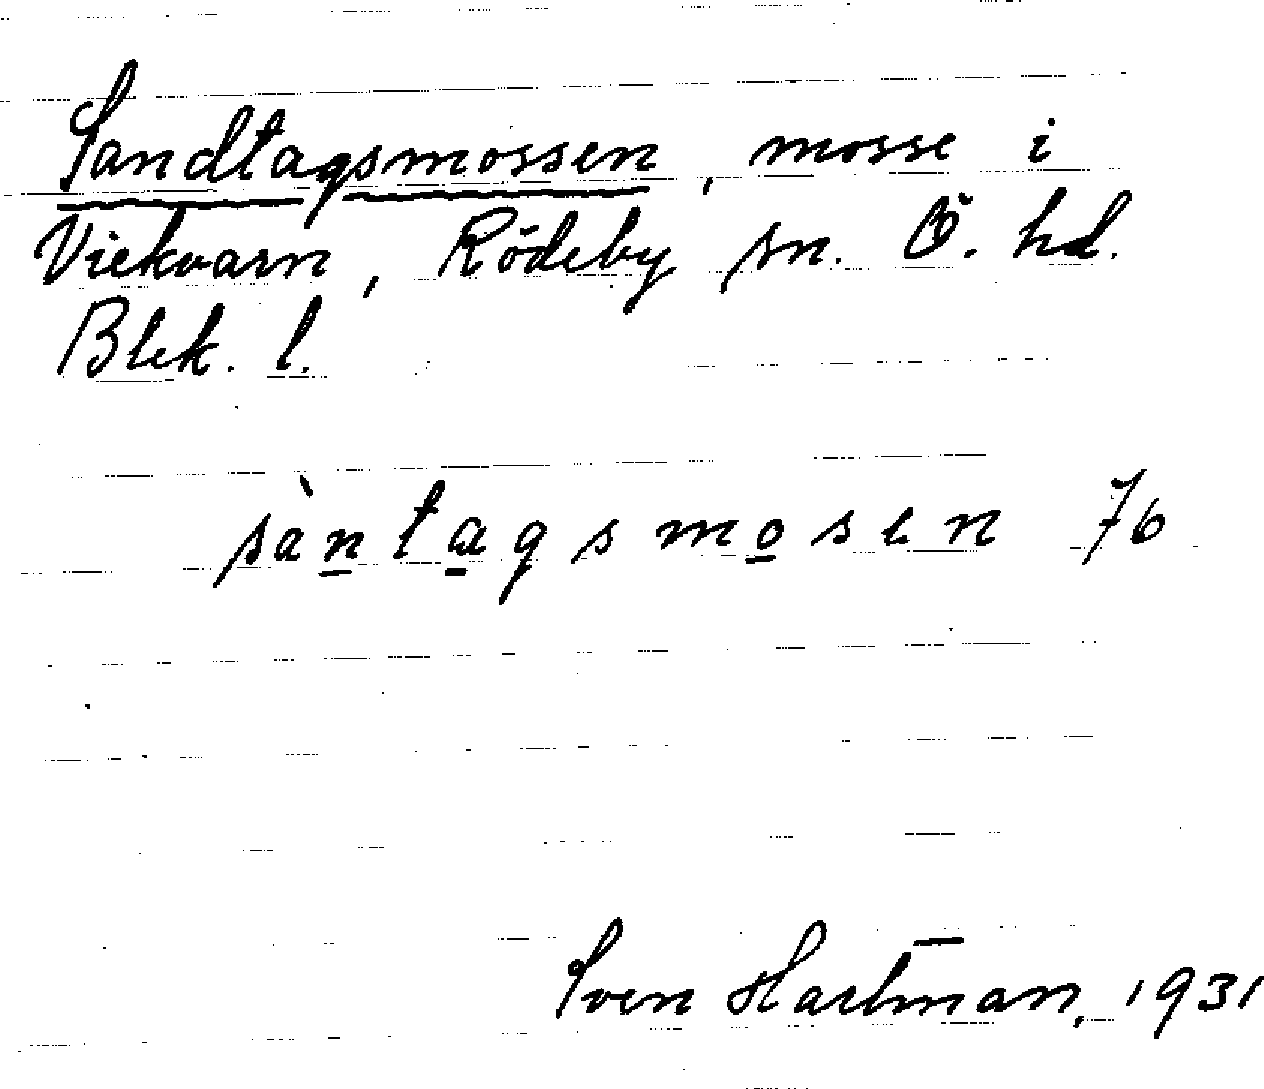 Sandtagsmossen, mosse i
Viekvarn, Rödeby sn. Ö. hd.
Blek. l.
sàntagsmosen 76
Sven Hartman, 1931